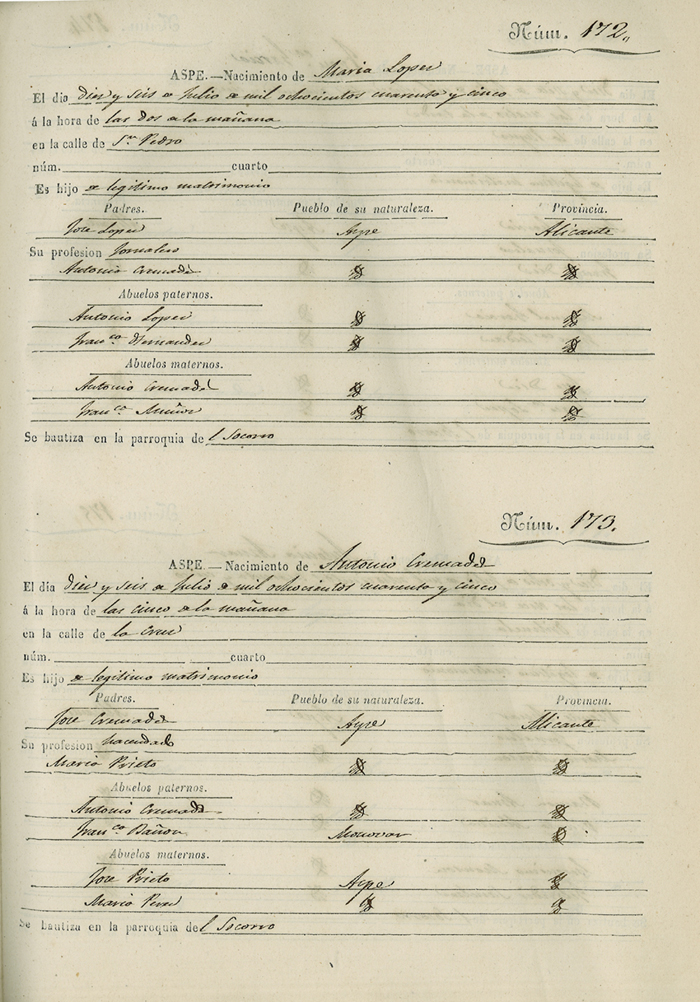 Núm. 172.
ASPE.—Nacimiento de Maria Lopez
El dia diez y seis de Julio de mil ochocientos cuarenta y cinco
á la hora de las dos de la mañana
en la calle de Sn. Pedro
núm. cuarto
Es hijo de legitimo matrimonio
Padres. Pueblo de su naturaleza. Provincia.
Jose Lopez Aspe Alicante
Su profesion Jornalero
Antonia Cremades
Abuelos paternos.
Antonio Lopez
Franca. Hernandez
Abuelos maternos.
Antonio Cremades
Franca. Muñoz
Se bautiza en la parroquia del Socorro
Núm. 173.
ASPE.—Nacimiento de Antonio Cremades
El dia diez y seis de Julio de mil ochocientos cuarenta y cinco
á la hora de las cinco de la mañana
en la calle de la Cruz
núm. cuarto
Es hijo de legitimo matrimonio
Padres. Pueblo de su naturaleza. Provincia.
Jose Cremades Aspe Alicante
Su profesion hacendado
Maria Prieto
Abuelos paternos.
Antonio Cremades
Franca. Bañon Monovar
Abuelos maternos.
Jose Prieto Aspe
Maria Perez
Se bautiza en la parroquia del Socorro